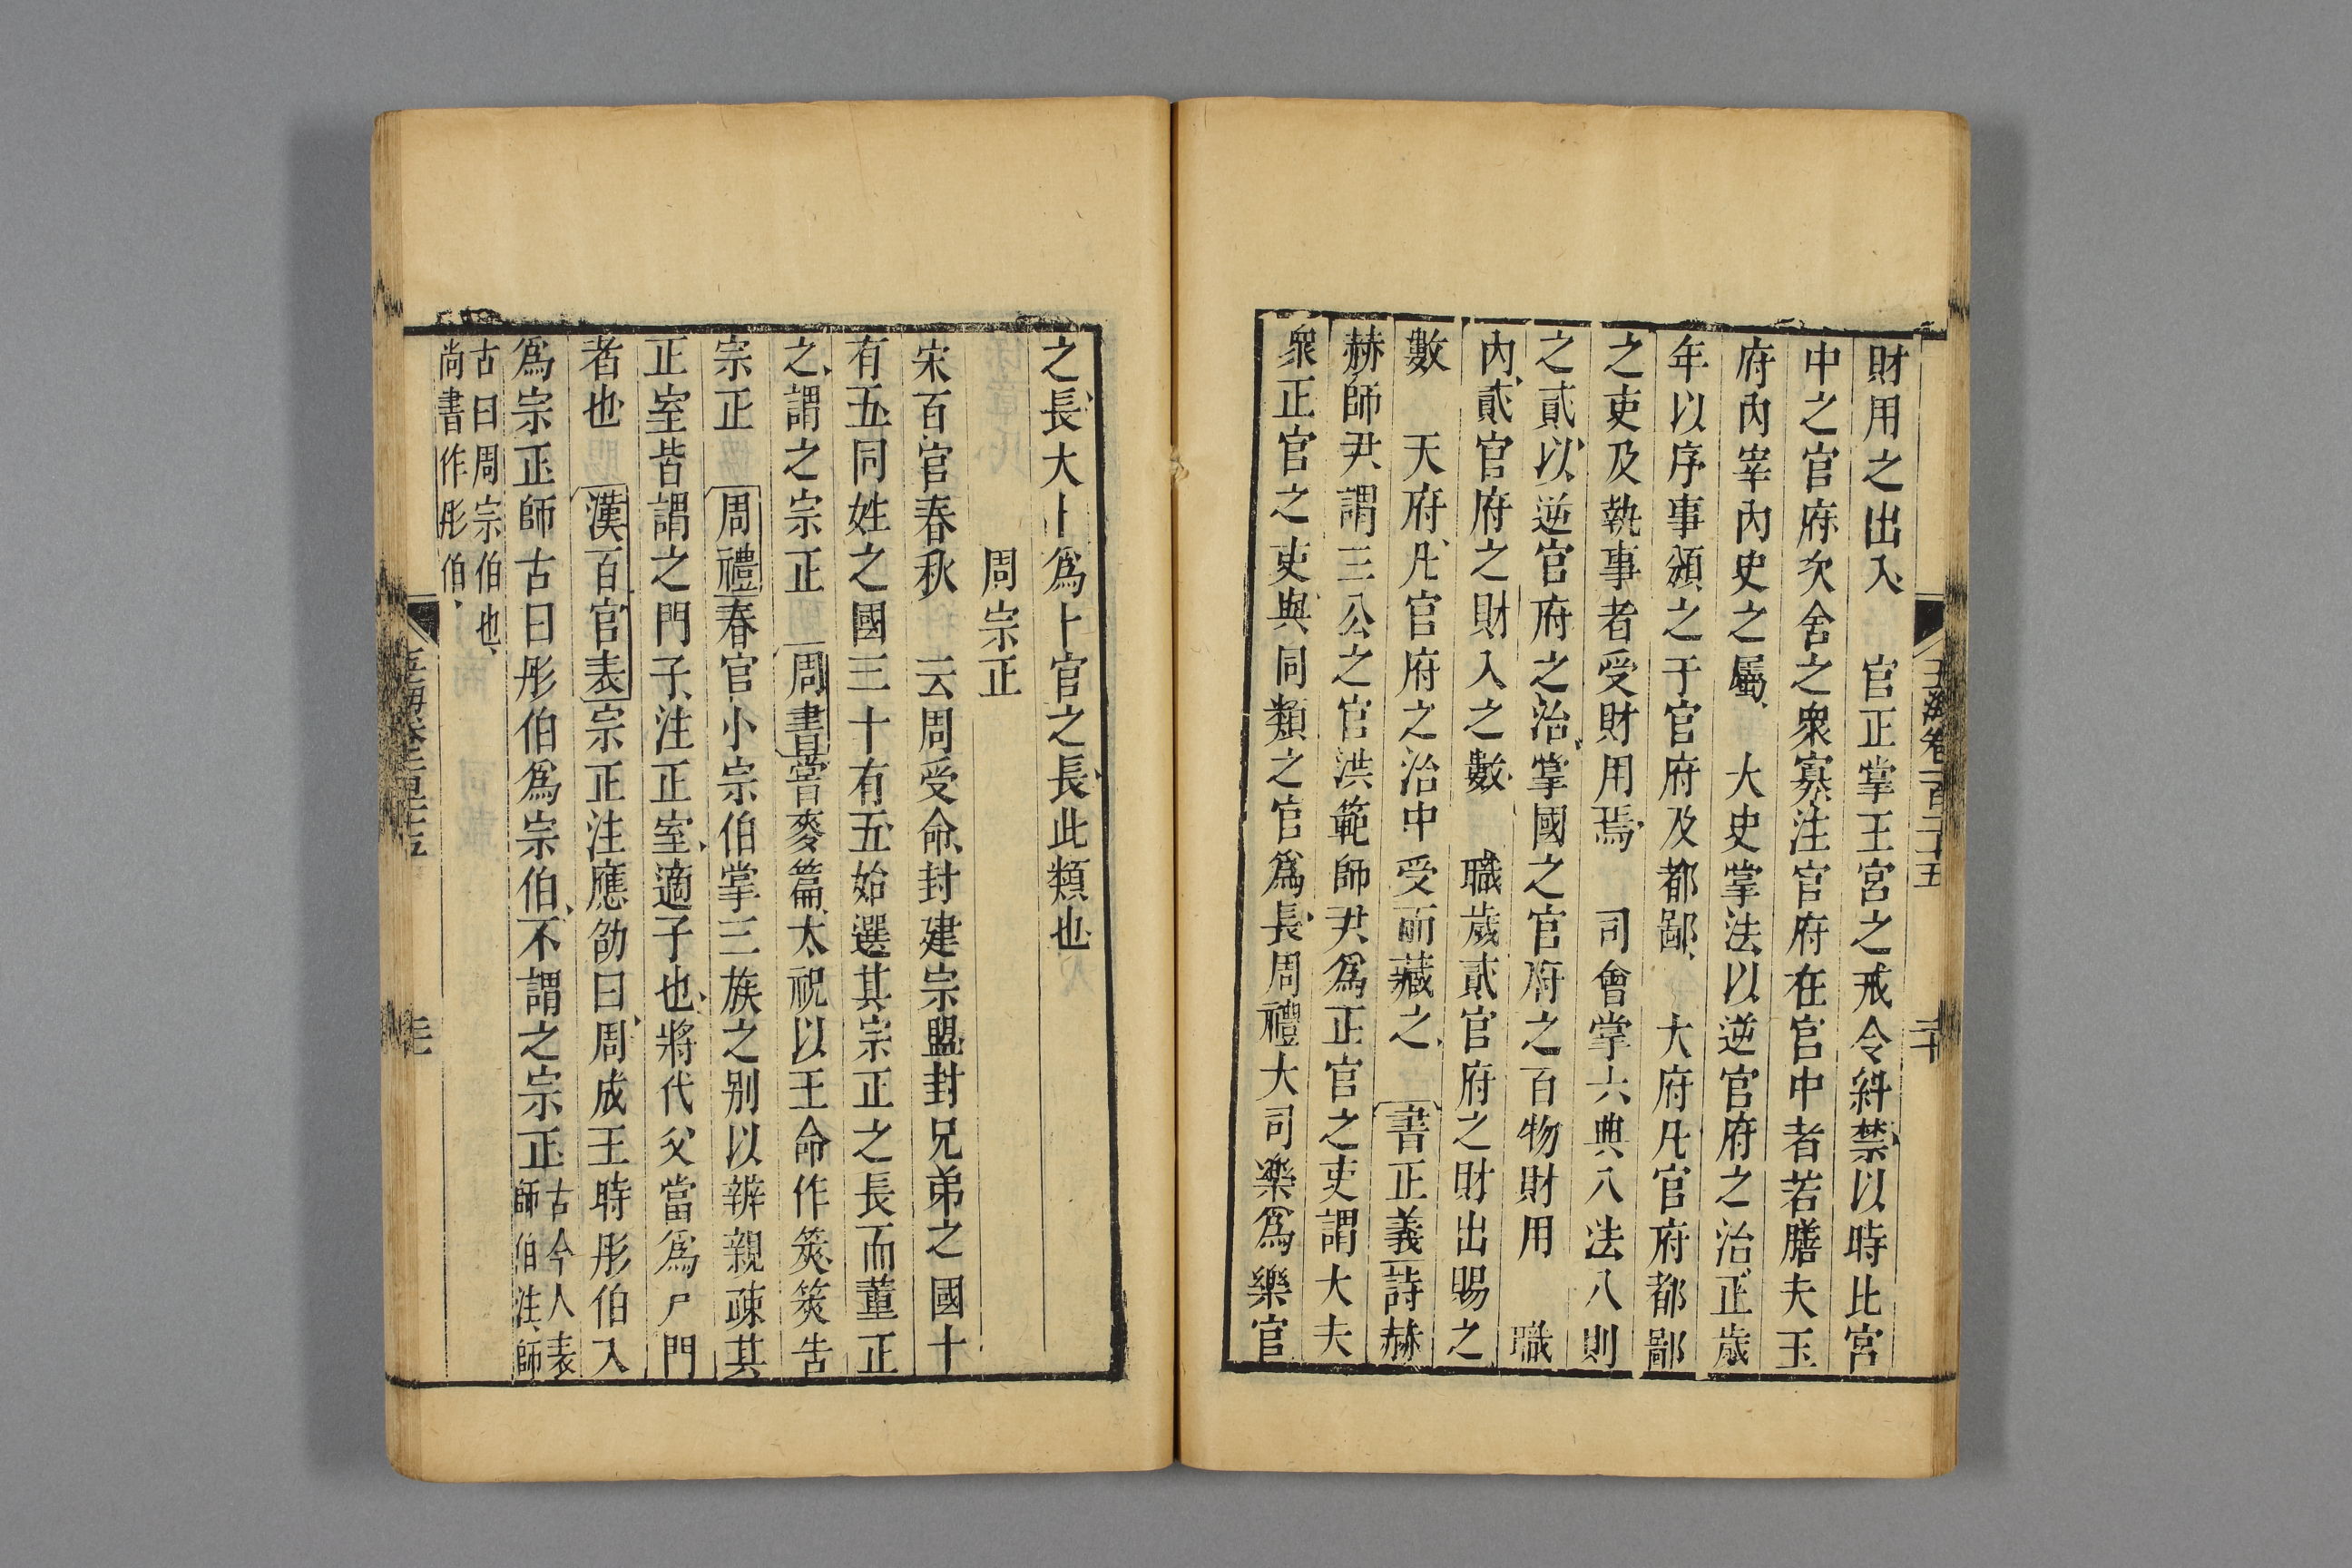 財用之出入　官正掌王宮之戒令糾禁以時比宮
中之官府次舍之衆寡注官府在官中者若膳夫玉
府內宰內史之屬　大史掌法以逆官府之治正歲
年以序事頒之于官府及都鄙　大府凡官府都鄙
之吏及執事者受財用焉　司會掌六典八法八則
之貳以逆官府之治掌國之官府之百物財用　職
內貳官府之財入之數　職歲貳官府之財出賜之
數　天府凡官府之治中受而藏之　書正義詩赫
赫師尹謂三公之官洪範師尹爲正官之吏謂大夫
衆正官之吏與同類之官爲長周禮大司樂爲樂官
之長大卜爲卜官之長此類也
周宗正
宋百官春秋　云周受命封建宗盟封兄弟之國十
有五同姓之國三十有五始選其宗正之長而董正
之謂之宗正　周書嘗麥篇太祝以王命作筴筴告
宗正　周禮春官小宗伯掌三族之別以辨親疎其
正室皆謂之門子注正室適子也將代父當爲尸門
者也　漢百官表宗正注應劭曰周成王時彤伯入
爲宗正師古曰彤伯爲宗伯不謂之宗正古今人表
師伯注師
古曰周宗伯也
尚書作彤伯